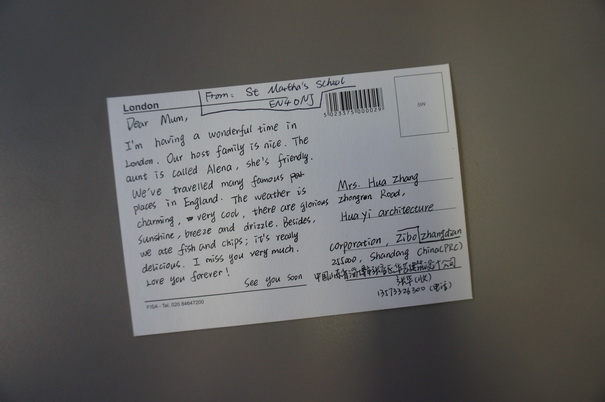 London
From: St Martha's School
EN4 0NJ
5 023375 000029
Dear Mum,
I'm having a wonderful time in
London. Our host family is nice. The
aunt is called Alena, she's friendly.
We've travelled many famous
places in England. The weather is
charming, very cool, there are glorious
sunshine, breeze and drizzle. Besides,
we ate fish and chips; it's really
delicious. I miss you very much.
Love you forever!
See you soon
PISA - Tel. 020 84647200
Mrs. Hua Zhang
Road,
Huayi architecture
corporation, Zibo Zhangdian
Shandong China (PRC)
中国山东省淄博市
张华(收)
(电话)